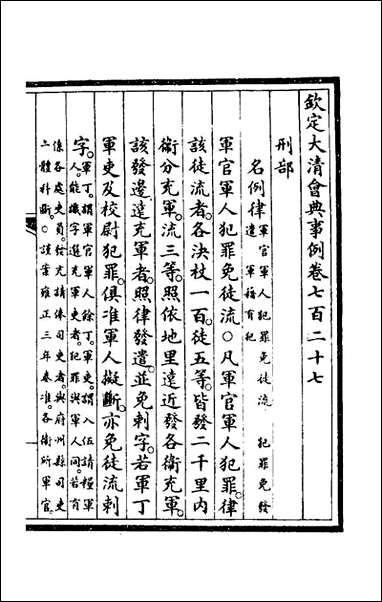 欽定大清會典事例卷七百二十七
刑部
名例律軍官軍人犯罪免徒流　犯罪免發
遣　軍籍有犯
軍官軍人犯罪免徒流○凡軍官軍人犯罪律
該徒流者各決杖一百徒五等皆發二千里內
衛分充軍流三等照依地里遠近發各衛充軍
該發邊遠充軍者照律發遣並免刺字若軍丁
軍吏及校尉犯罪俱准軍人擬斷亦免徒流刺
字軍丁謂軍官軍人餘丁軍吏謂入伍請糧軍
人能識字選充軍吏者犯罪與軍人同若有
係各處吏員發充請俸司吏者與府州縣司吏
一體科斷○謹案雍正三年奏准各衛所軍官